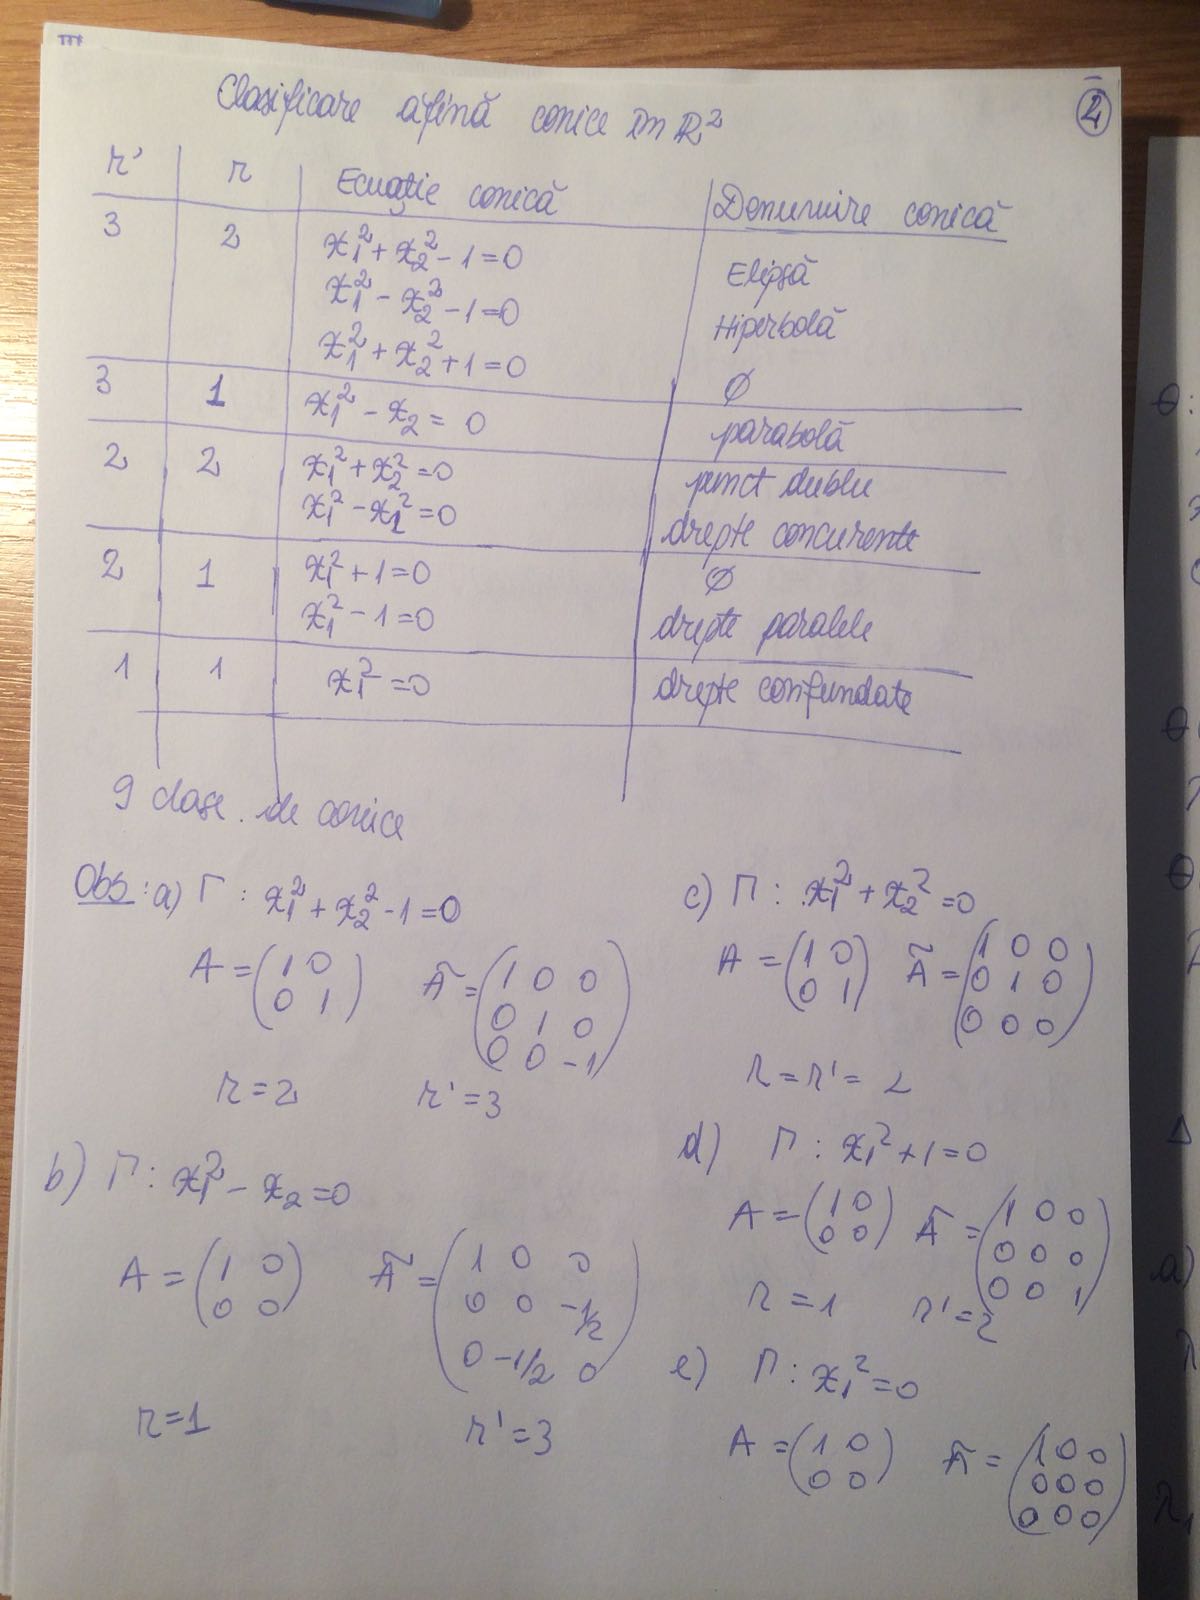 Clasificare afină conice în ℝ²
2
r' r Ecuație conică Denumire conică
3 2 x₁² + x₂² - 1 = 0 Elipsă
x₁² - x₂² - 1 = 0 Hiperbolă
x₁² + x₂² + 1 = 0 ∅
3 1 x₁² - x₂ = 0 parabolă
2 2 x₁² + x₂² = 0 punct dublu
x₁² - x₂² = 0 drepte concurente
2 1 x₁² + 1 = 0 ∅
x₁² - 1 = 0 drepte paralele
1 1 x₁² = 0 drepte confundate
9 clase de conice
Obs: a) Γ : x₁² + x₂² - 1 = 0
A = (1 0
0 1)
Ã = (1 0 0
0 1 0
0 0 -1)
r = 2 r' = 3
b) Γ : x₁² - x₂ = 0
A = (1 0
0 0)
Ã = (1 0 0
0 0 -1/2
0 -1/2 0)
r = 1 r' = 3
c) Γ : x₁² + x₂² = 0
A = (1 0
0 1)
Ã = (1 0 0
0 1 0
0 0 0)
r = r' = 2
d) Γ : x₁² + 1 = 0
A = (1 0
0 0)
Ã = (1 0 0
0 0 0
0 0 1)
r = 1 r' = 2
e) Γ : x₁² = 0
A = (1 0
0 0)
Ã = (1 0 0
0 0 0
0 0 0)